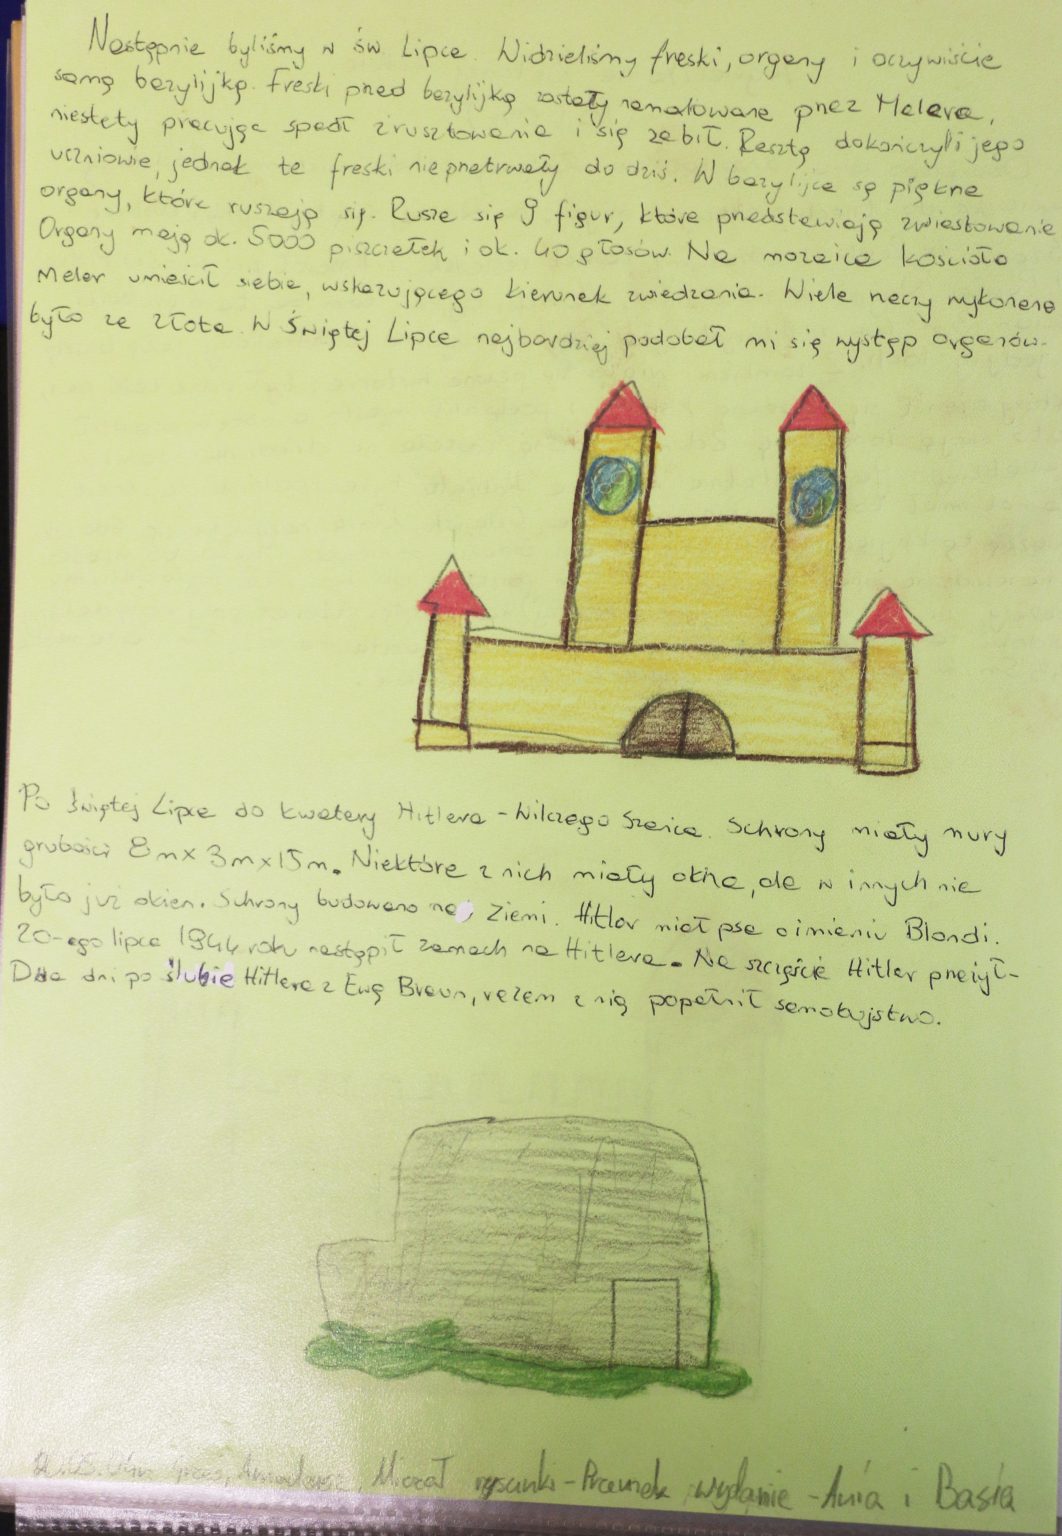 Następnie byliśmy w św Lipce. Widzieliśmy freski, organy i oczywiście
samą bazylijkę. Freski przed bazylijką zostały namalowane przez Melera,
niestety pracując spadł z rusztowania i się zabił. Resztę dokończyli jego
uczniowie, jednak te freski nie przetrwały do dziś. W bazylijce są piękne
organy, które ruszają się. Rusza się 9 figur, które przedstawiają zwiastowanie
Organy mają ok. 5000 piszczałek i ok. 40 głosów. Na mozaice kościoła
Meler umieścił siebie, wskazującego kierunek zwiedzania. Wiele rzeczy wykonane
było ze złota. W Świętej Lipce najbardziej podobał mi się występ organów.
Po Świętej Lipce do kwatery Hitlera - Wilczego Szańca. Schrony miały mury
grubości 8m x 3m x 15m. Niektóre z nich miały okna, ale w innych nie
było już okien. Schrony budowano na ziemi. Hitler miał psa o imieniu Blondi.
20-ego lipca 1944 roku nastąpił zamach na Hitlera. Na szczęście Hitler przeżył.
Dwa dni po ślubie Hitlera z Ewą Braun, razem z nią popełnił samobójstwo.
Michał rysunki - Przemek wydanie - Ania i Basia